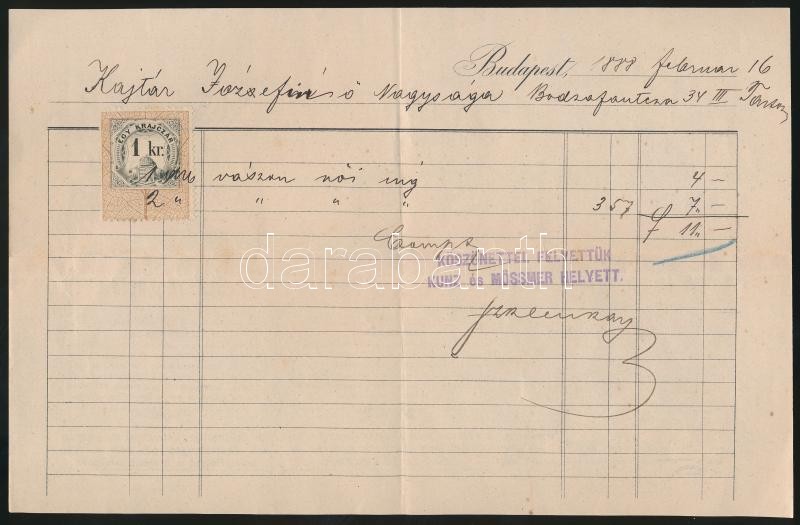 Budapest, 1888 februar 16
Kajtár Józsefinső Nagysága Bodzafautcza 34 III
EGY KRAJCZÁR
1 kr.
1 vászon női ing 4 —
2 " " " " 3 57 7 " —
f 11 " —
Compt
KÖSZÖNETTEL FELVETTÜK
KUNZ és MÖSSMER HELYETT.
darabanth.com